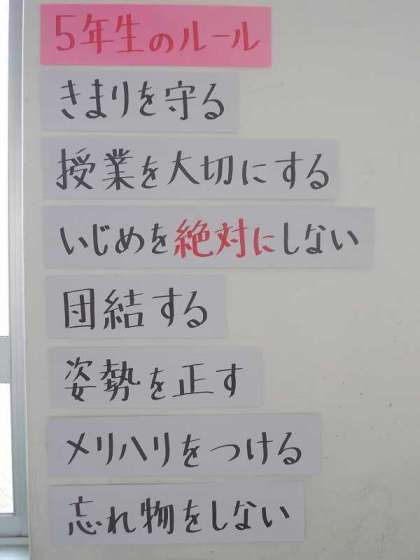 5年生のルール
きまりを守る
授業を大切にする
いじめを絶対にしない
団結する
姿勢を正す
メリハリをつける
忘れ物をしない